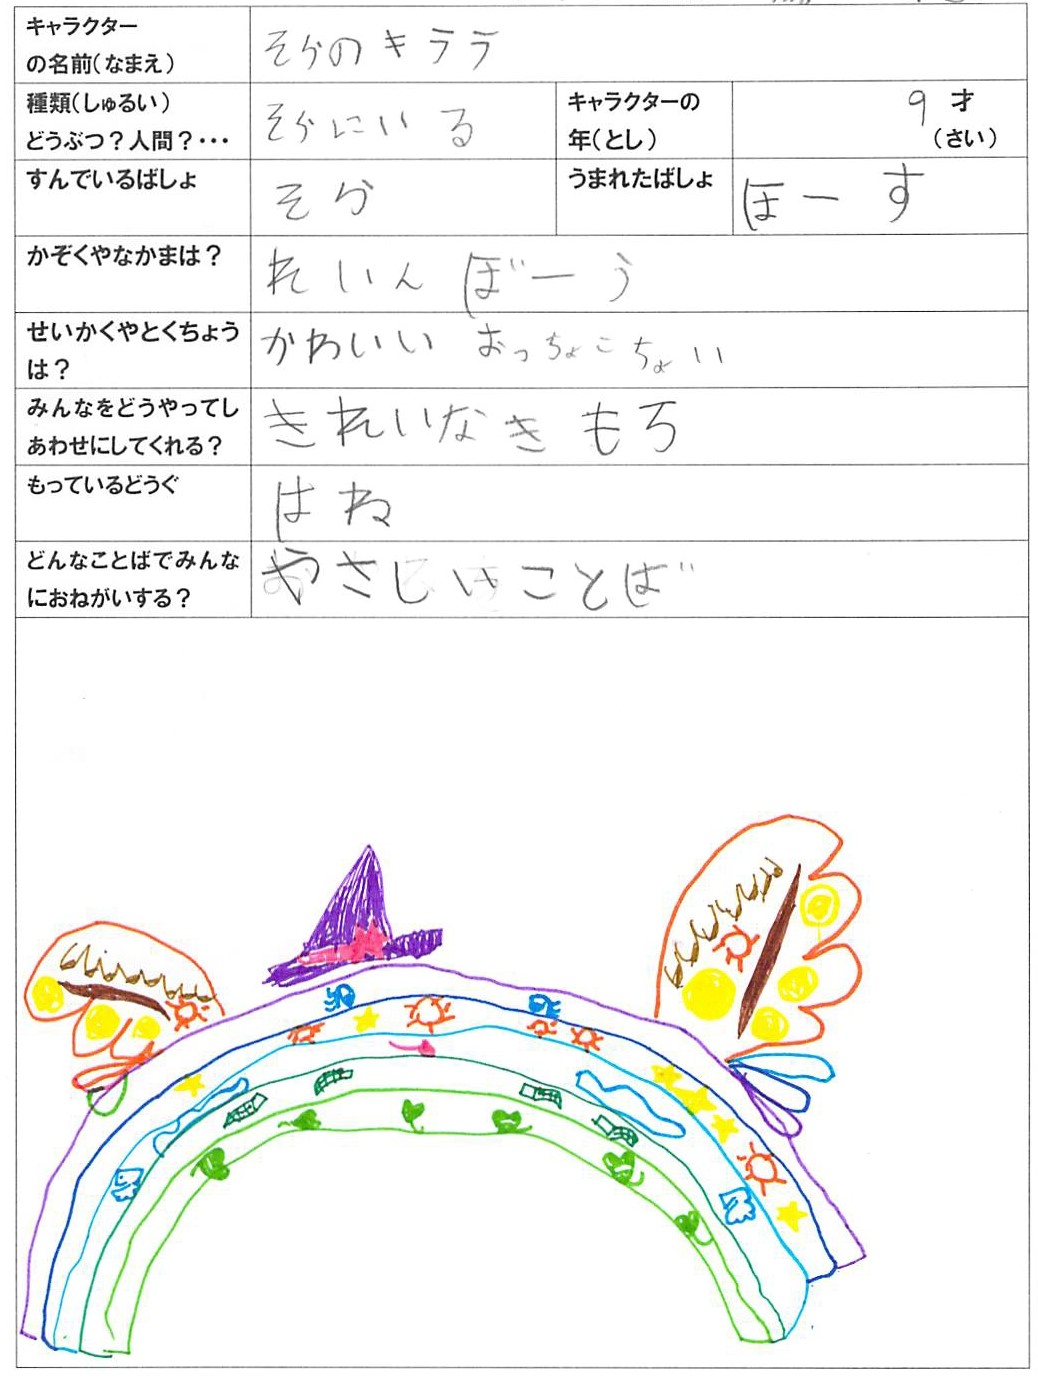 キャラクター
の名前(なまえ)
そらのキララ
種類(しゅるい)
どうぶつ？人間？･･･
そらにいる
キャラクターの
年(とし)
9才
(さい)
すんでいるばしょ
そら
うまれたばしょ
ほーす
かぞくやなかまは？
れいんぼーう
せいかくやとくちょう
は？
かわいい おっちょこちょい
みんなをどうやってし
あわせにしてくれる？
きれいなきもち
もっているどうぐ
はね
どんなことばでみんな
におねがいする？
やさしいことば